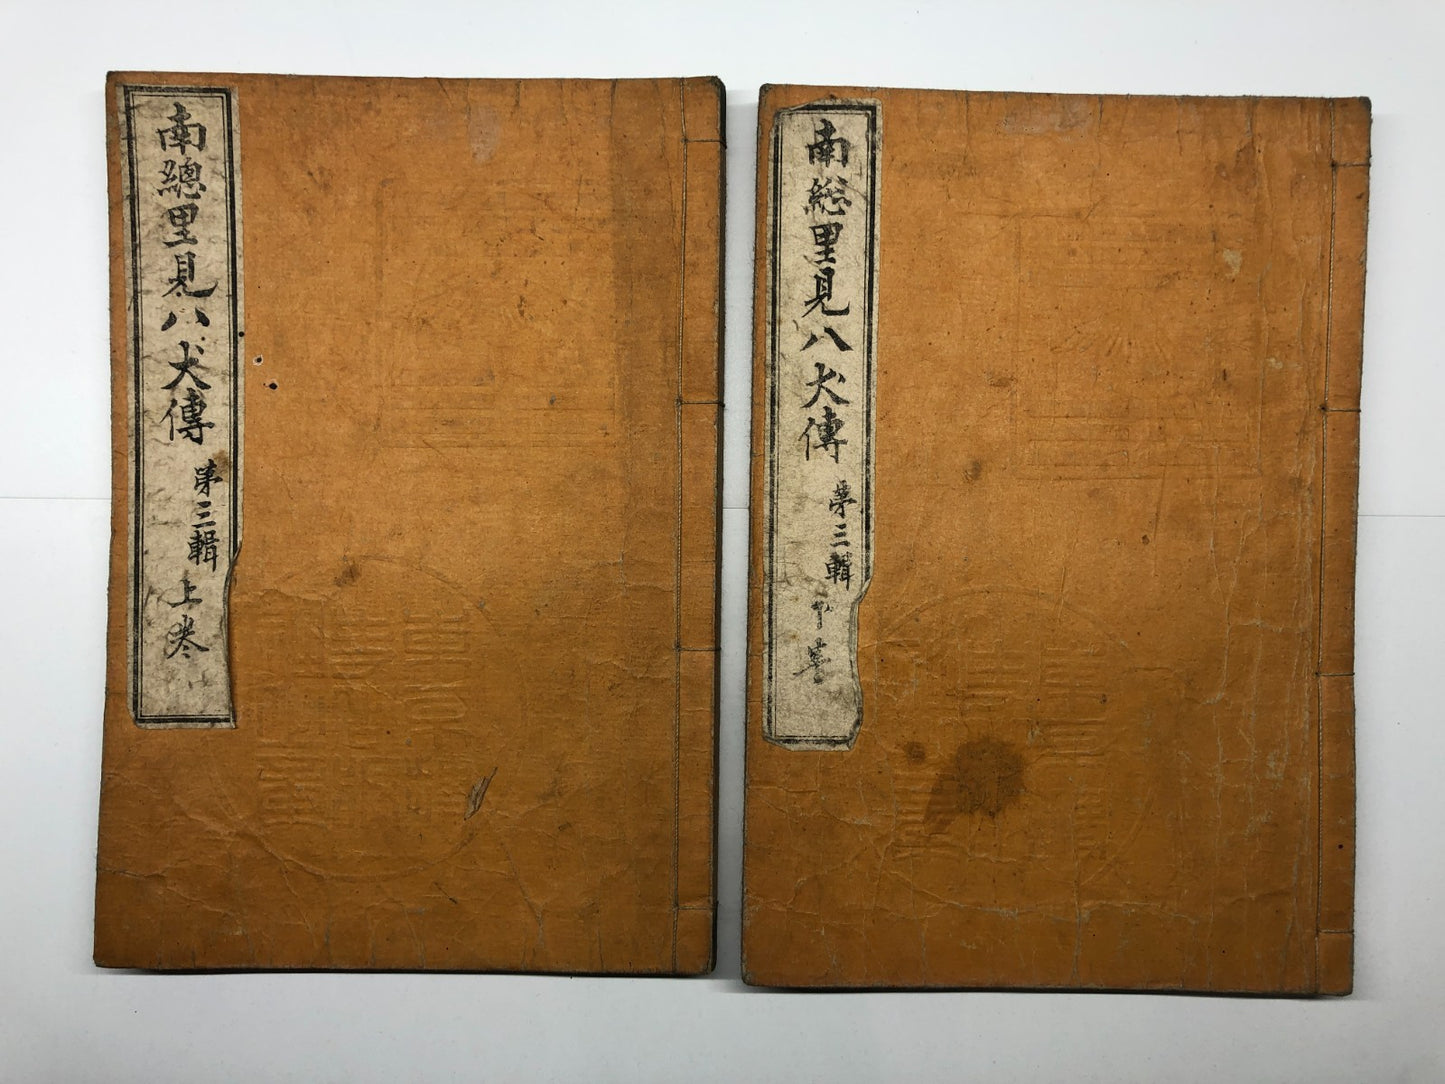 南總里見八犬傳
第三輯
上巻
南総里見八犬傳
第三輯
下巻